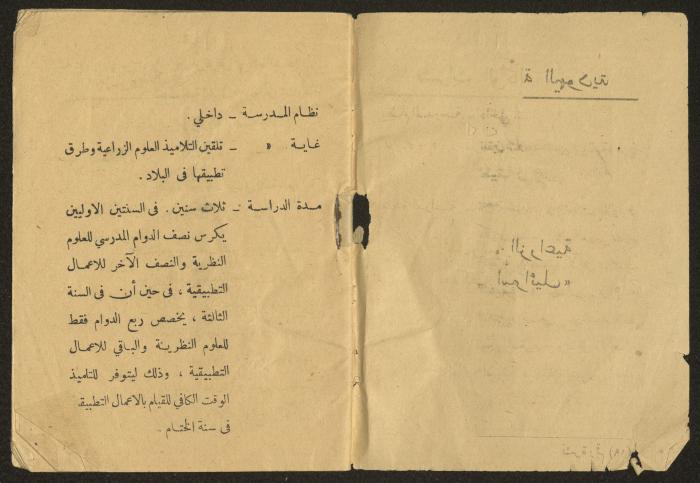 نظام المدرسة ـ داخلي .
غاية « ـ تلقين التلاميذ العلوم الزراعية وطرق
تطبيقها فى البلاد .
مدة الدراسة ـ ثلاث سنين . فى السنتين الاوليين
يكرس نصف الدوام المدرسي للعلوم
النظرية والنصف الآخر للاعمال
التطبيقية ، فى حين أن فى السنة
الثالثة ، يخصص ربع الدوام فقط
للعلوم النظرية والباقي للاعمال
التطبيقية ، وذلك ليتوفر للتلميذ
الوقت الكافي للقيام بالاعمال التطبيقـ
فى سنة الختام .
ة اليهودية
الزراعية
اسرائيل »